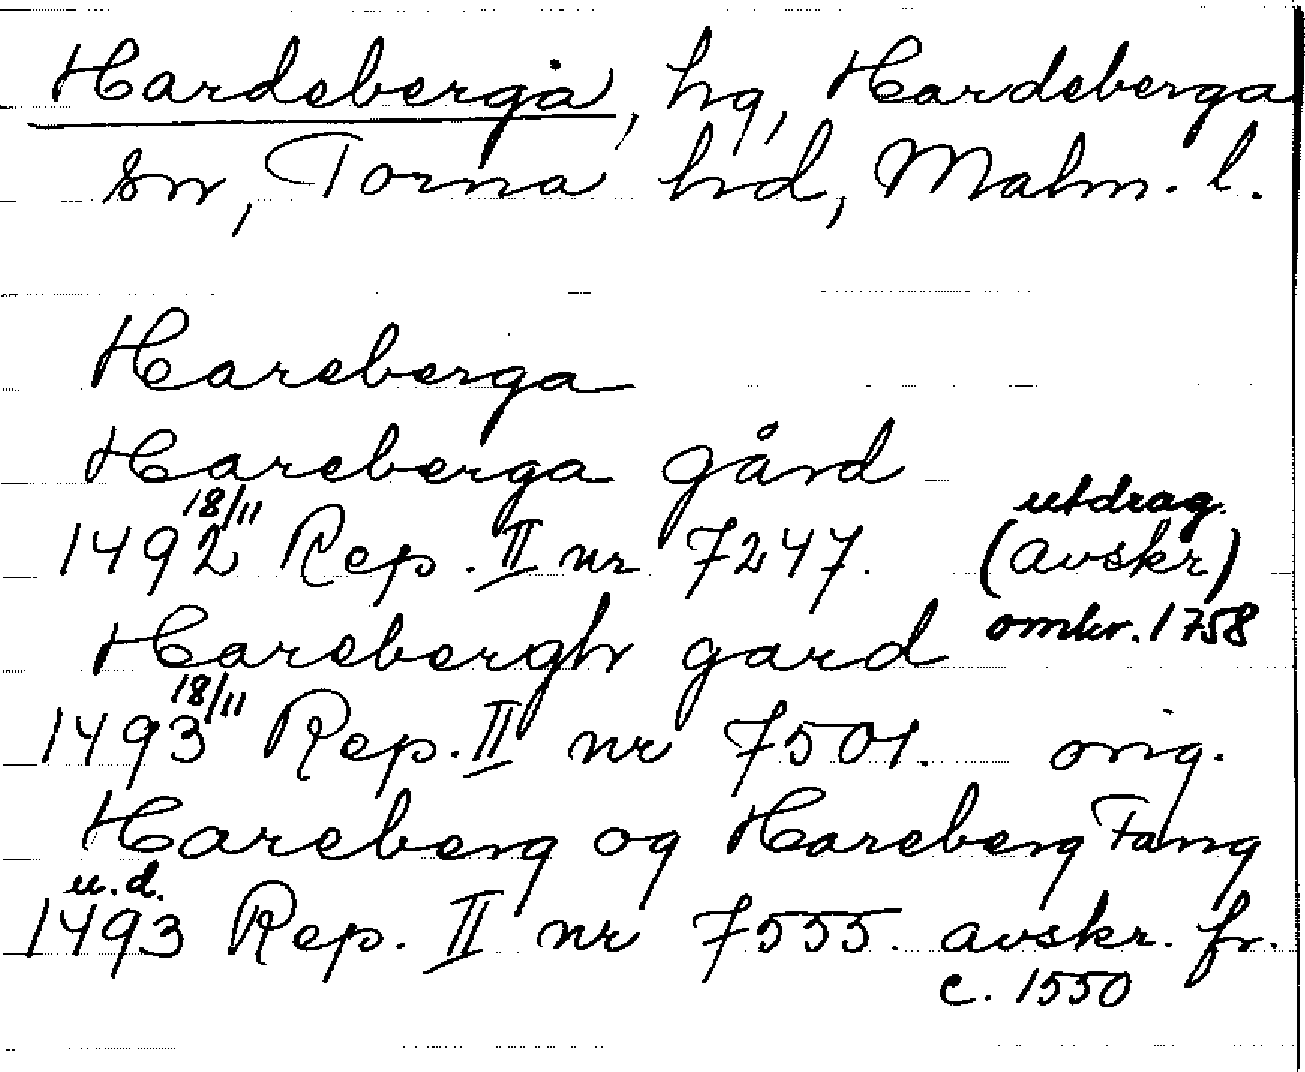 Hardeberga, hg, Hardeberga
sn, Torna hd, Malm. l.
Hareberga
Hareberga gård
18/11 utdrag
1492 Rep. II nr 7247. (avskr)
omkr. 1758
Harebergh gard
18/11
1493 Rep. II nr 7501. orig.
Hareberg og Hareberg Fang
u.d.
1493 Rep. II nr 7555. avskr. fr.
c. 1550